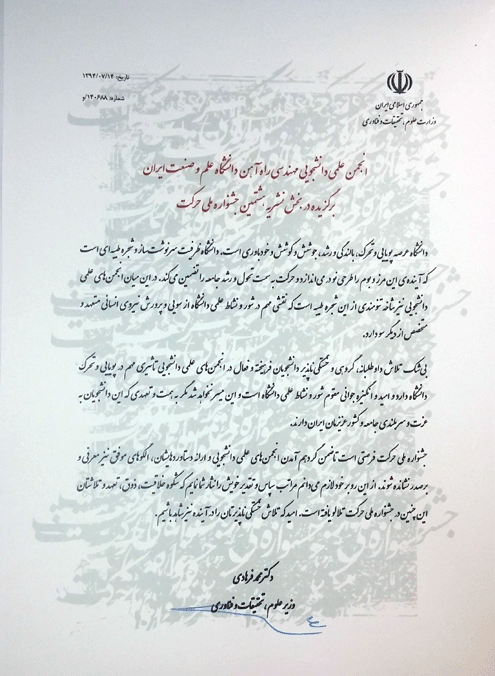 جمهوری اسلامی ایران
وزارت علوم، تحقیقات و فناوری
تاریخ: ۱۳۹۴/۰۷/۱۴
شماره: ۱۴۰۶۸۸/و
انجمن علمی دانشجویی مهندسی راه آهن دانشگاه علم و صنعت ایران
برگزیده در بخش نشریه هشتمین جشنواره ملی حرکت
دانشگاه عرصه پویایی و تحرک، بالندگی و رشد، جوشش و کوشش و خودباوری است. دانشگاه ظرفیت سرنوشت ساز و شجره طیبه ای است
که آینده‌ی این مرز و بوم را طرحی نو در می اندازد و حرکت به سمت تحول و رشد جامعه را تضمین می‌کند. در این میان انجمن‌های علمی
دانشجویی نیز شاخه تنومندی از این شجره طیبه است که نقشی مهم در شور و نشاط علمی دانشگاه از سویی و پرورش نیروی انسانی متعهد و
متخصص از دیگر سو دارد.
بی‌شک تلاش داوطلبانه، گروهی و خستگی ناپذیر دانشجویان فرهیخته و فعال در انجمن‌های علمی دانشجویی تاثیری مهم در پویایی و تحرک
دانشگاه دارد و امید و انگیزه جوانی مقوم شور و نشاط علمی دانشگاه است و این میسر نخواهد شد مگر به همت و تعهدی که این دانشجویان به
عزت و سربلندی جامعه و کشور عزیزمان ایران دارند.
جشنواره ملی حرکت فرصتی است تا ضمن گردهم آمدن انجمن‌های علمی دانشجویی و ارائه دستاوردهایشان، الگوهای موفق نیز معرفی و
بر صدر نشانده شوند. از این رو بر خود لازم می‌دانم مراتب سپاس و تقدیر خویش را نثار شما نمایم که شکوه خلاقیت، ذوق، تعهد و تلاشتان
این چنین در جشنواره ملی حرکت تلالو یافته است. امید که تلاش خستگی ناپذیرتان را در آینده نیز شاهد باشیم.
دکتر محمد فرهادی
وزیر علوم، تحقیقات و فناوری